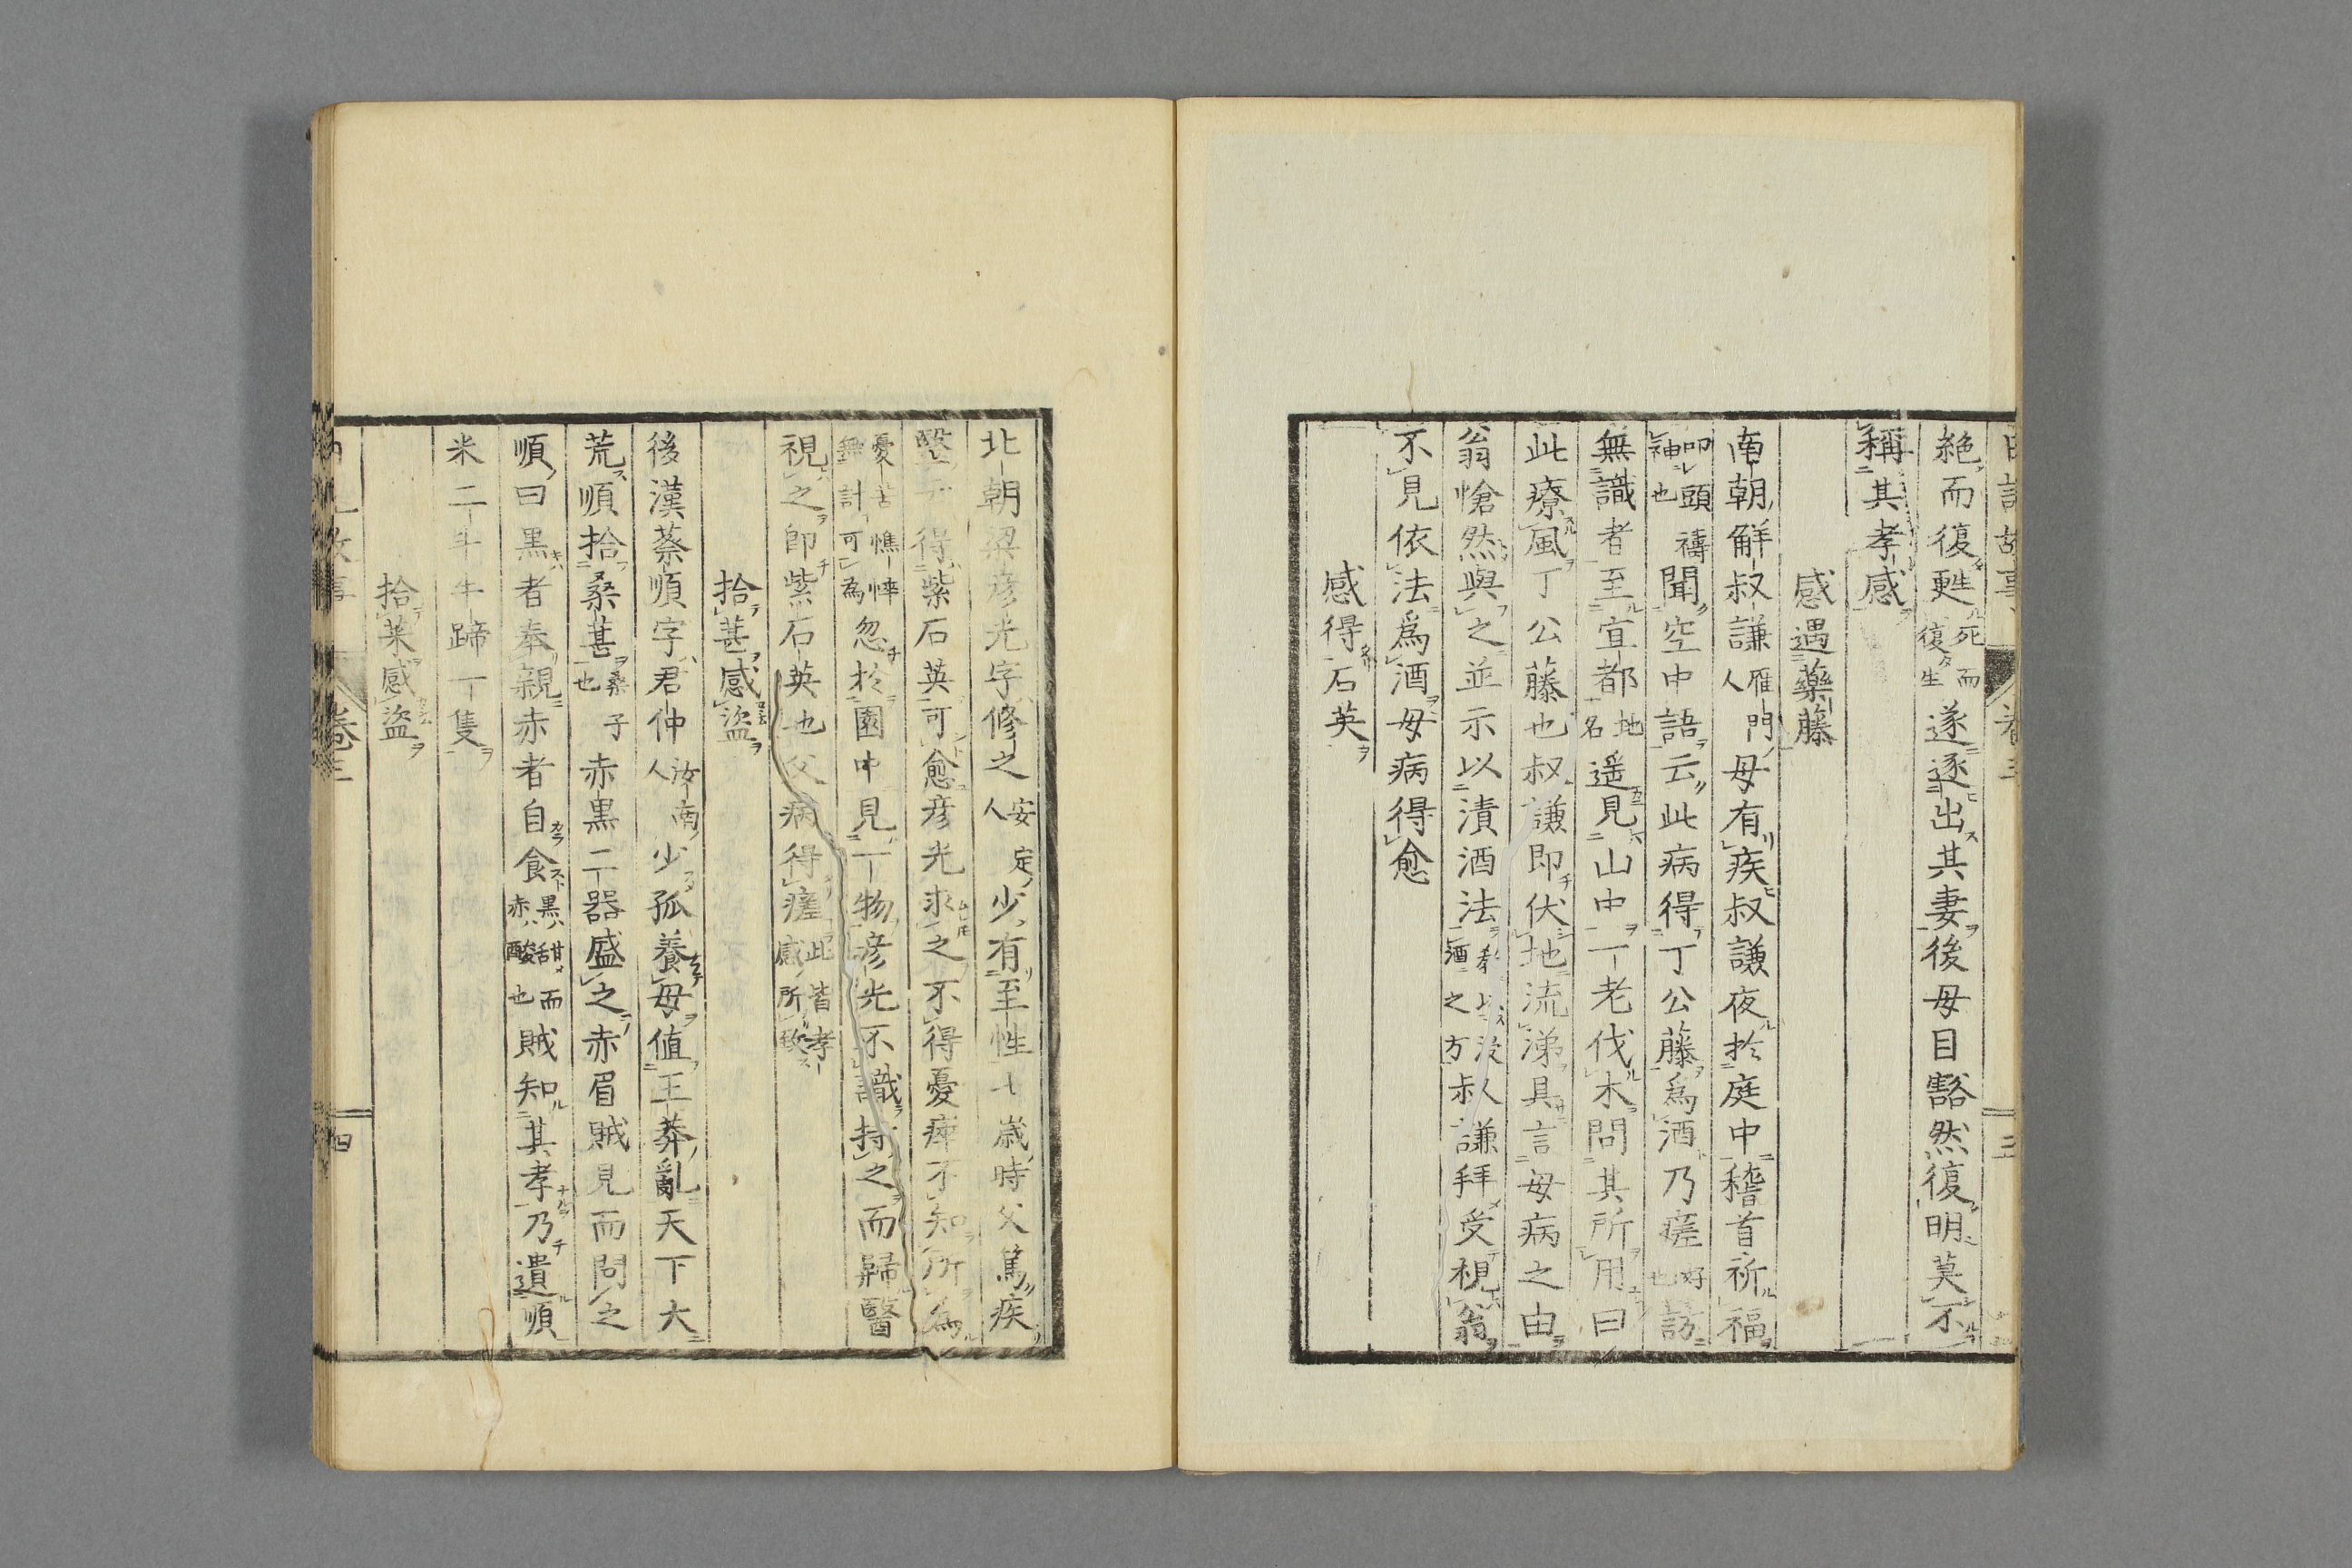 日記故事 卷三 三
絶而復甦死而復生遂逐出其妻後母目豁然復明莫不
稱其孝感
感遇藥藤
南朝解叔謙雁門人母有疾叔謙夜於庭中稽首祈福
叩頭禱神也聞空中語云此病得丁公藤爲酒乃瘥好也訪
無識者至宜都地名遥見山中一老伐木問其所用曰
此療風丁公藤也叔謙即伏地流涕具言母病之由
翁愴然與之並示以漬酒法教以浸酒之方叔謙拜受視翁
不見依法爲酒母病得愈
感得石英
北朝梁彦光字修之安定人少有至性七歳時父篤疾
醫云得紫石英可愈彦光求之不得憂瘁不知所為
憂苦憔悴無計可為忽於園中見一物彦光不識持之而歸醫
視之即紫石英也父病得瘥此皆孝感所致
拾葚感盜
後漢蔡順字君仲汝南人少孤養母値王莽亂天下大
荒順拾桑葚桑子也赤黒二器盛之赤眉賊見而問之
順曰黒者奉親赤者自食黒甜而赤酸也賊知其孝乃遺順
米二斗牛蹄一隻
拾菜感盜
日記故事 卷三 四